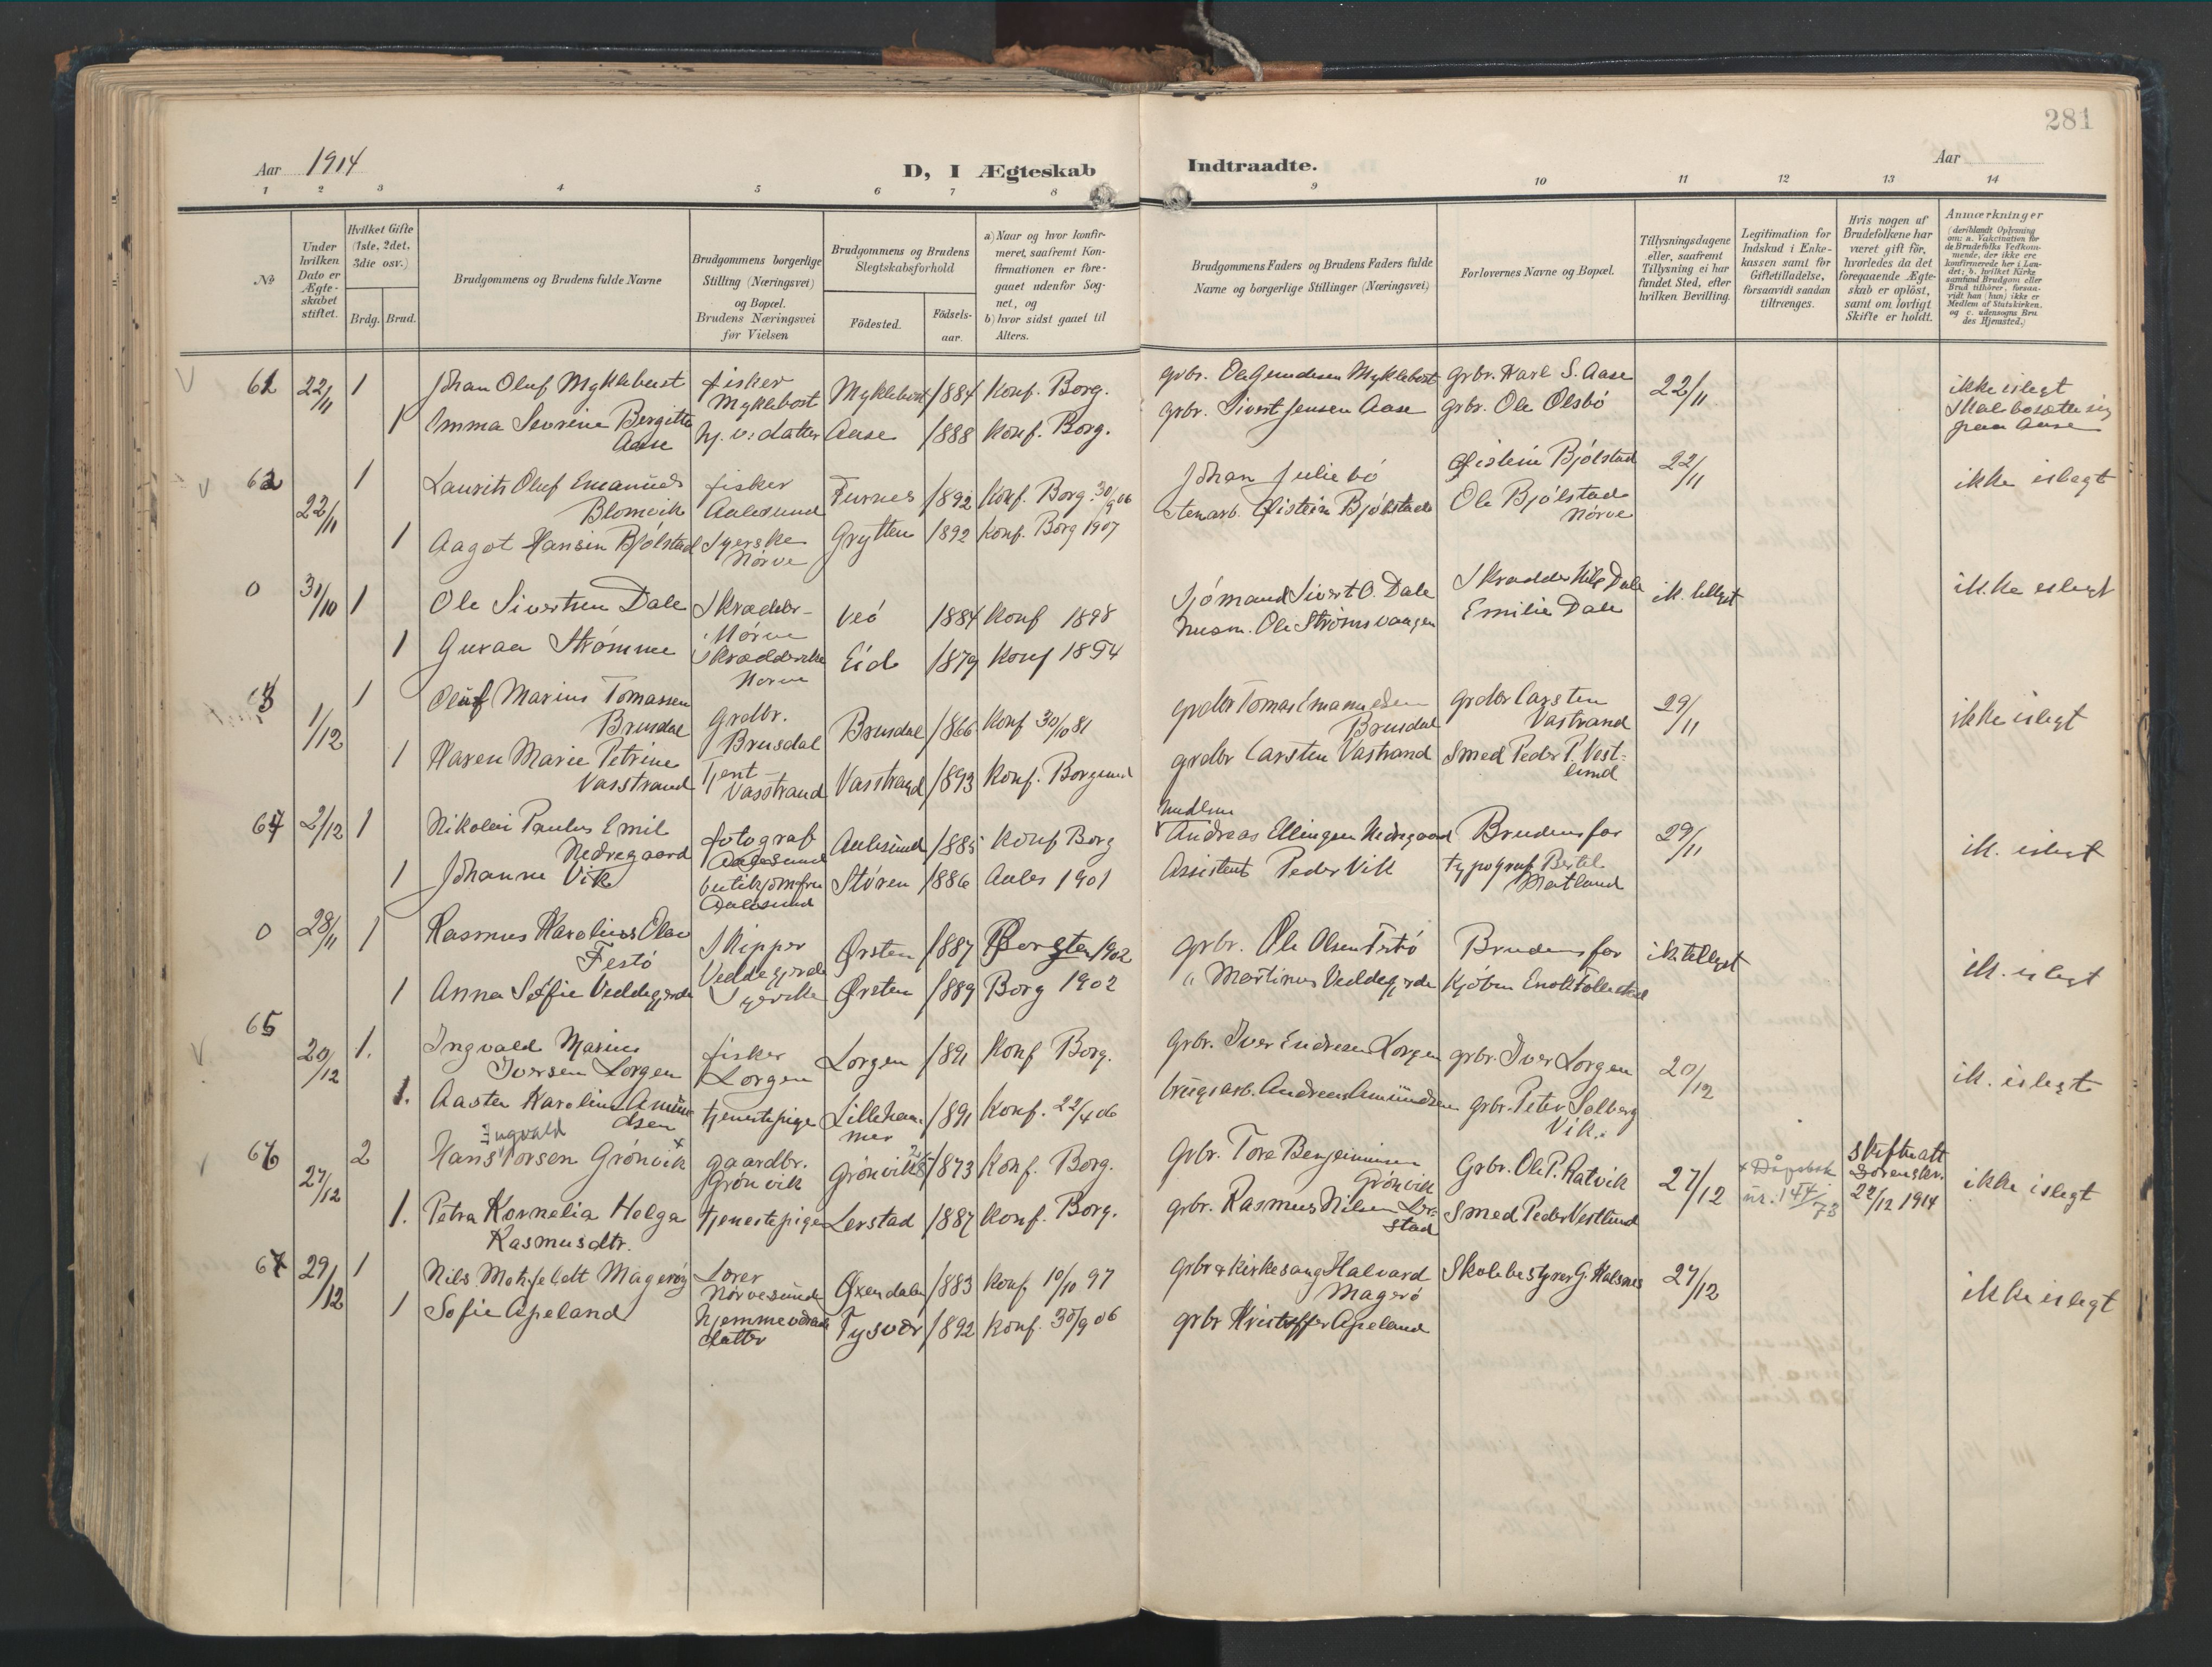 281
Aar 1914
D, I Ægteskab
Indtraadte.
Aar
1 2 3 4 5 6 7 8 9 10 11 12 13 14
№
Under hvilken Dato er Ægteskabet stiftet.
Hvilket Gifte (1ste, 2det, 3die osv.)
Brdg. Brud.
Brudgommens og Brudens fulde Navne
Brudgommens borgerlige Stilling (Næringsvei) og Bopæl. Brudens Næringsvei før Vielsen
Brudgommens og Brudens Slegtskabsforhold
Fødested.
Fødselsaar.
a) Naar og hvor konfirmeret, saafremt Konfirmationen er foregaaet udenfor Sognet, og
b) hvor sidst gaaet til Alters.
Brudgommens Faders og Brudens Faders fulde Navne og borgerlige Stillinger (Næringsvei)
Forlovernes Navne og Bopæl.
Tillysningsdagene eller, saafremt Tillysning ei har fundet Sted, efter hvilken Bevilling.
Legitimation for Indskud i Enkekassen samt for Giftetilladelse, forsaavidt saadan tiltrænges.
Hvis nogen af Brudefolkene har været gift før, hvorledes da det foregaaende Ægteskab er opløst, samt om lovligt Skifte er holdt.
Anmærkninger (deriblandt Oplysning om: a. Vakcination for de Brudefolks Vedkommende, der ikke ere konfirmerede her i Landet; b. hvilket Kirkesamfund Brudgom eller Brud tilhører, forsaavidt han (hun) ikke er Medlem af Statskirken. og c. udensogns Brudes Hjemsted.)
61 22/11 1 Johan Oluf Myklebust fisker Myklebost Myklebost 1884 Konf. Borg. grbr. Ole Gundesen Myklebost grbr. Karl S. Aase 22/11 ikke islegt
1 Emma Severine Bergitte Aase hj. v. datter Aase 1888 Konf. Borg. grbr. Sivert Jensen Aase grbr. Ole Olsbö Skal bosætte sig paa Aase
62 22/11 1 Laurits Oluf Emanuels Blomvik fisker Aalesund Furnes 1892 Konf. Borg. 30/9 06 Johan Juliebö Øistein Bjölstad 22/11 ikke islegt
1 Aagot Hansin Bjölstad Syerske Nörve Grytten 1892 Konf. Borg 1907 stenarb. Øistein Bjölstad Ole Bjölstad Nörve
0 31/10 1 Ole Sivertsen Dale Skrædder Nörve Veö 1884 Konf 1898 Sjömand Sivert O. Dale Skrædder Nils Dale ik. tillyst ikke islegt
1 Guraa Strømme Skrædderske Nørve Eid 1879 Konf 1894 husm. Ole Strømsvaagen Emilie Dale
63 1/12 1 Oluf Marius Tomassen Brusdal Grdbr. Brusdal Brusdal 1866 Konf 30/10 81 grdbr Tomas Emanuelsen Brusdal grdbr Carsten Vastrand 29/11 ikke islegt
1 Maren Marie Petrine Vasstrand Tjent Vasstrand Vasstrand 1893 Konf. Borgund grdbr Carsten Vastrand Smed Peder P. Vestlund
64 2/12 1 Nikolai Paulus Emil Nedregaard fotograf Aalesund Aalesund 1885 Konf Borg Andreas Ellingsen Nedregaard Brudens far 29/11 ik. islegt
1 Johanne Vik butikjomfru Aalesund Støren 1886 Aales 1901 Assistent Peder Vik typograf Bertil Matland
0 28/11 1 Rasmus Karolius Olav Festö Skipper Veddegjerde Ørsten 1887 Ørsten 1902 grbr. Ole Olsen Festö Brudens far ik. tillyst ik. islegt
1 Anna Sofie Veddegjerde Syerske Ørsten 1889 Borg 1902 " Martinus Veddegjerde Kjöbm Enok Follestad
65 20/12 1. Ingvald Marius Iversen Lorgen fisker Lorgen Lorgen 1891 Konf Borg. grbr. Iver Endresen Lorgen grbr. Iver Lorgen 20/12 ik. islegt
1. Aasta Karoline Amundsen tjenestepige Lillehammer 1891 Konf. 22/4 06 brugsarb. Andreas Amundsen grbr. Peter Solberg Vik.
66 27/12 2 Hans Ingvald Torsen Grönvik x gaardbr. Grönvik Grönvik 1873 Konf. Borg. Grbr. Tore Benjeminsen Grönvik Grbr. Ole P. Ratvik 27/12 x Dåpsbok nr. 144/73 Skifteatt Sorenskr. 22/12 1914 ikke islegt
1. Petra Kornelia Helga Rasmusdtr. tjenestepige Lerstad 1887 Konf. Borg. grbr. Rasmus Nilsen Lerstad Smed Peder Vestlund
67 29/12 1 Nils Mohsfeldt Magerøy Lærer Nørvesund Øxendalen 1883 Konf 10/10 97 Grbr & kirkesang Halvard Magerö Skolebestyrer G. Halsnes 27/12 ikke islegt
1 Sofie Apeland hjemmeværende datter Tysvær 1892 Konf. 30/9 06 grbr Kristoffer Apeland